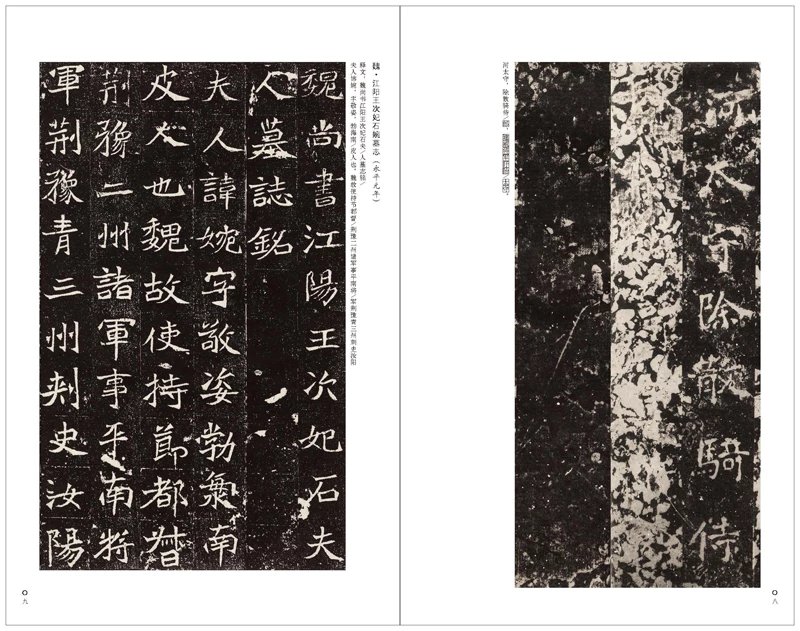 河太守除散骑侍郎
河太守除散騎侍
〇八
魏·江阳王次妃石婉墓志（永平元年）
释文：魏尚书江阳王次妃石夫/人墓志铭/
夫人讳婉，字敬姿，勃海南/皮人也。魏故使持节都督/荆豫二州诸军事平南将/军荆豫青三州刺史汝阳
魏尚書江陽王次妃石夫
人墓誌銘
夫人諱婉字敬姿勃海南
皮人也魏故使持節都督
荆豫二州諸軍事平南將
軍荆豫青三州刺史汝陽
〇九